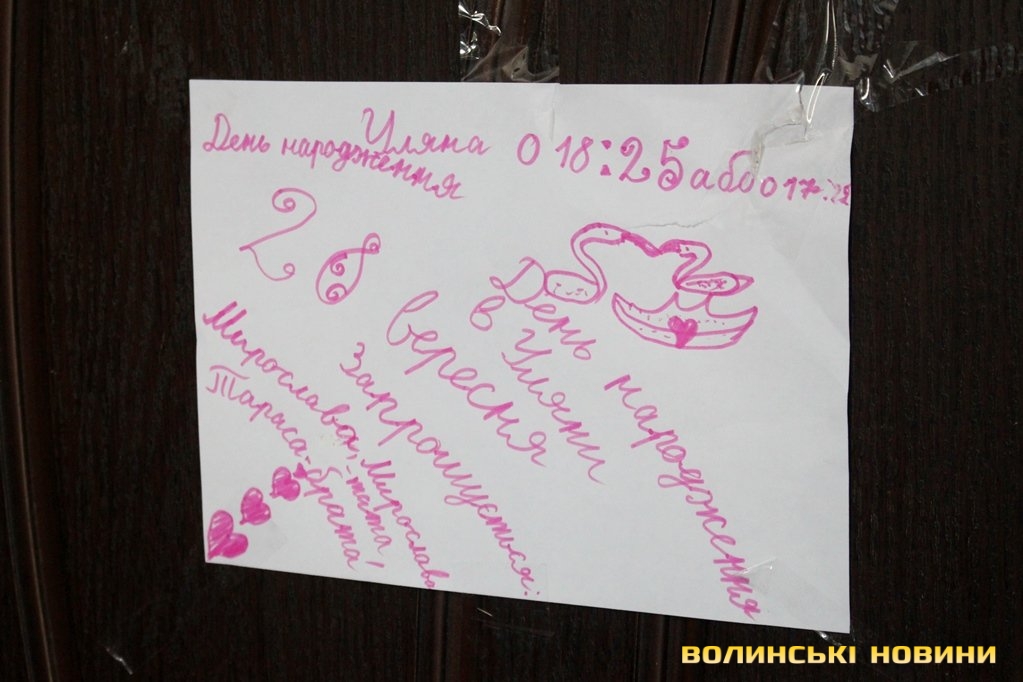 Уляна
День народження
О 18:25 або о 17:22
28
вересня
День народження
в Уляни
Запрошується:
Мирослава, Мирослава
- тата!
Тараса-брата!
ВОЛИНСЬКІ НОВИНИ